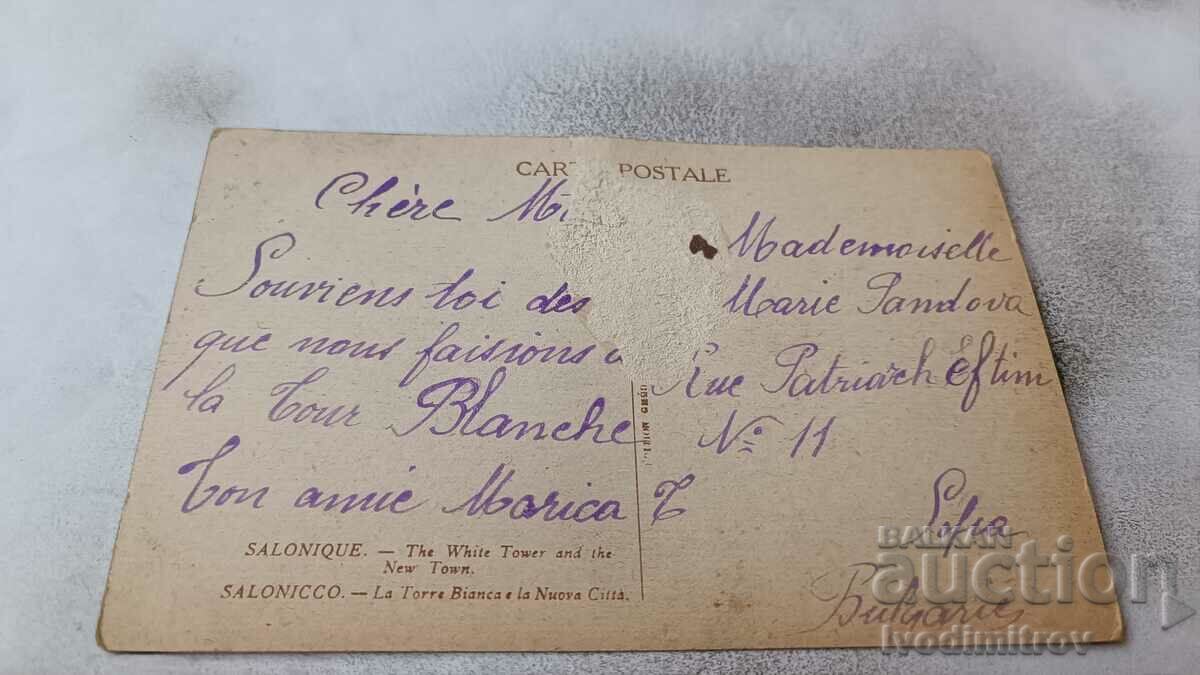 CARTE POSTALE
Chère
Souviens toi des
que nous faisions
la Tour Blanche
Ton amie Marica T
Mademoiselle
Marie Pandova
Rue Patriarch Eftim
No 11
Sofia
Bulgarie
SALONIQUE. — The White Tower and the
New Town.
SALONICCO. — La Torre Bianca e la Nuova Città.
BALKAN
auction
ivodimitrov